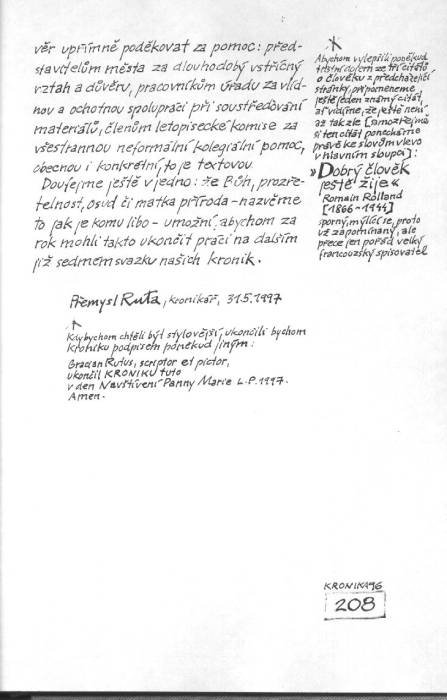 věr upřímně poděkovat za pomoc: před-
stavitelům města za dlouhodobý vstřícný
vztah a důvěru, pracovníkům úřadu za vlíd-
nou a ochotnou spolupráci při soustřeďování
materiálů, členům letopisecké komise za
všestrannou neformální kolegiální pomoc,
obecnou i konkrétní, to je textovou
Doufejme ještě v jedno: že Bůh, prozře-
telnost, osud či matka příroda – nazvěme
to jak je komu libo – umožní, abychom za
rok mohli takto ukončit práci na dalším
již sedmém svazku našich kronik.
Přemysl Ruta, kronikář, 31.5.1997
Kdybychom chtěli být stylovější, ukončili bychom
kroniku podpisem poněkud jiným:
Gracian Rutus, scriptor et pictor,
ukončil KRONIKU tuto
v den Navštívení Panny Marie L.P. 1997.
Amen.
Abychom vylepšili poněkud
tristní dojem ze tří citátů
o člověku z předcházející
stránky, připomeneme
ještě jeden známý citát,
ať vidíme, že ještě není
až tak zle (samozřejmě
si ten citát ponecháme
právě ke slovům vlevo
v hlavním sloupci):
»Dobrý člověk
ještě žije«
Romain Rolland
[1866-1944]
sporný, mýlící se, proto
už zapomínaný, ale
přece jen pořád velký
francouzský spisovatel
KRONIKA96
208